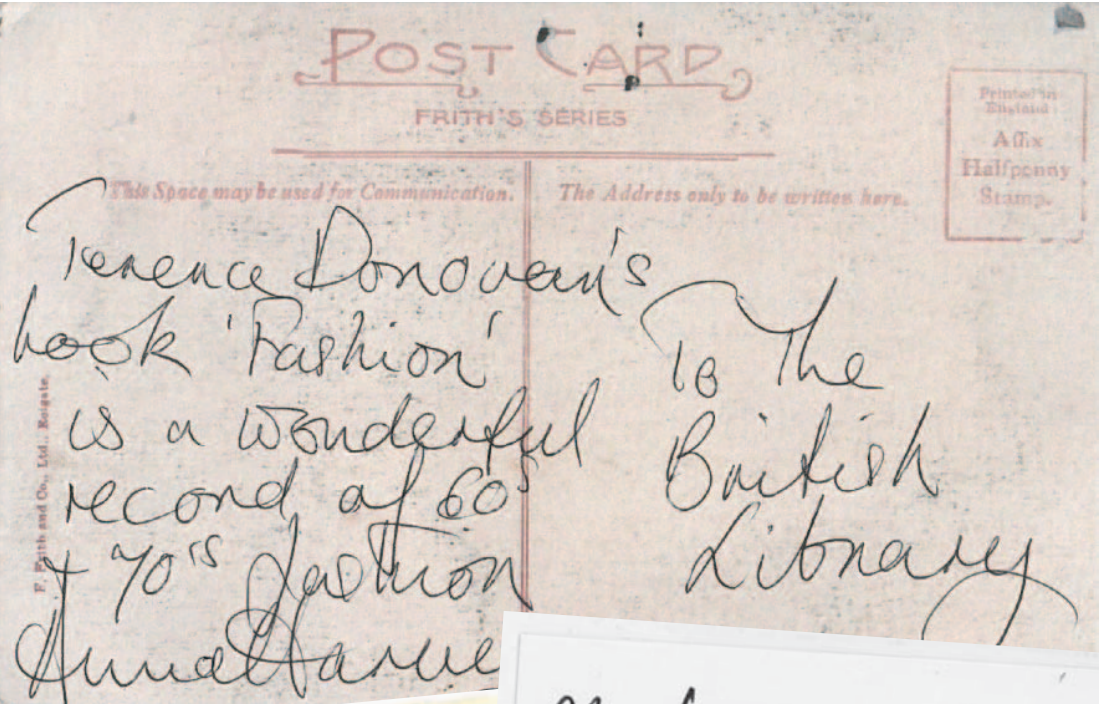 POST CARD
FRITH'S SERIES
Printed in
England
Affix
Halfpenny
Stamp.
This Space may be used for Communication.
The Address only to be written here.
Terence Donovan's
book 'Fashion'
is a wonderful
record of 60's
+ 70's fashion
Anna Harve
To The
British
Library
F. Frith and Co., Ltd., Reigate.